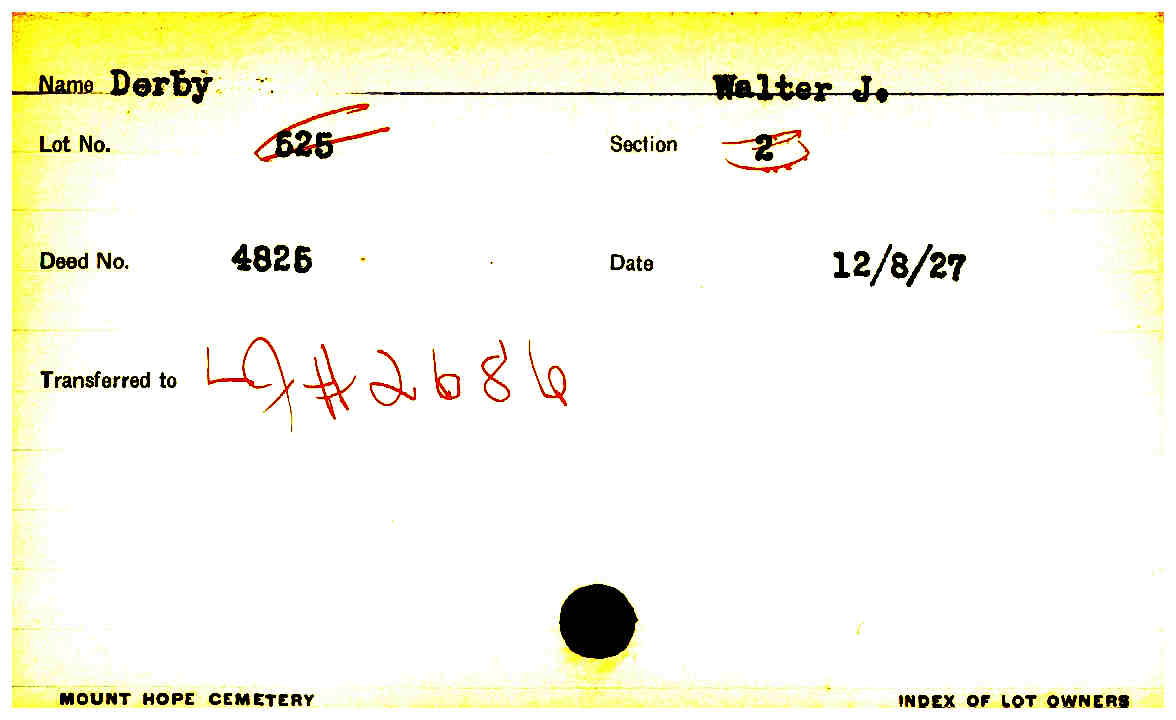 Name Derby Walter J.
Lot No. 525 Section 2
Deed No. 4825 Date 12/8/27
Transferred to #2686
MOUNT HOPE CEMETERY INDEX OF LOT OWNERS